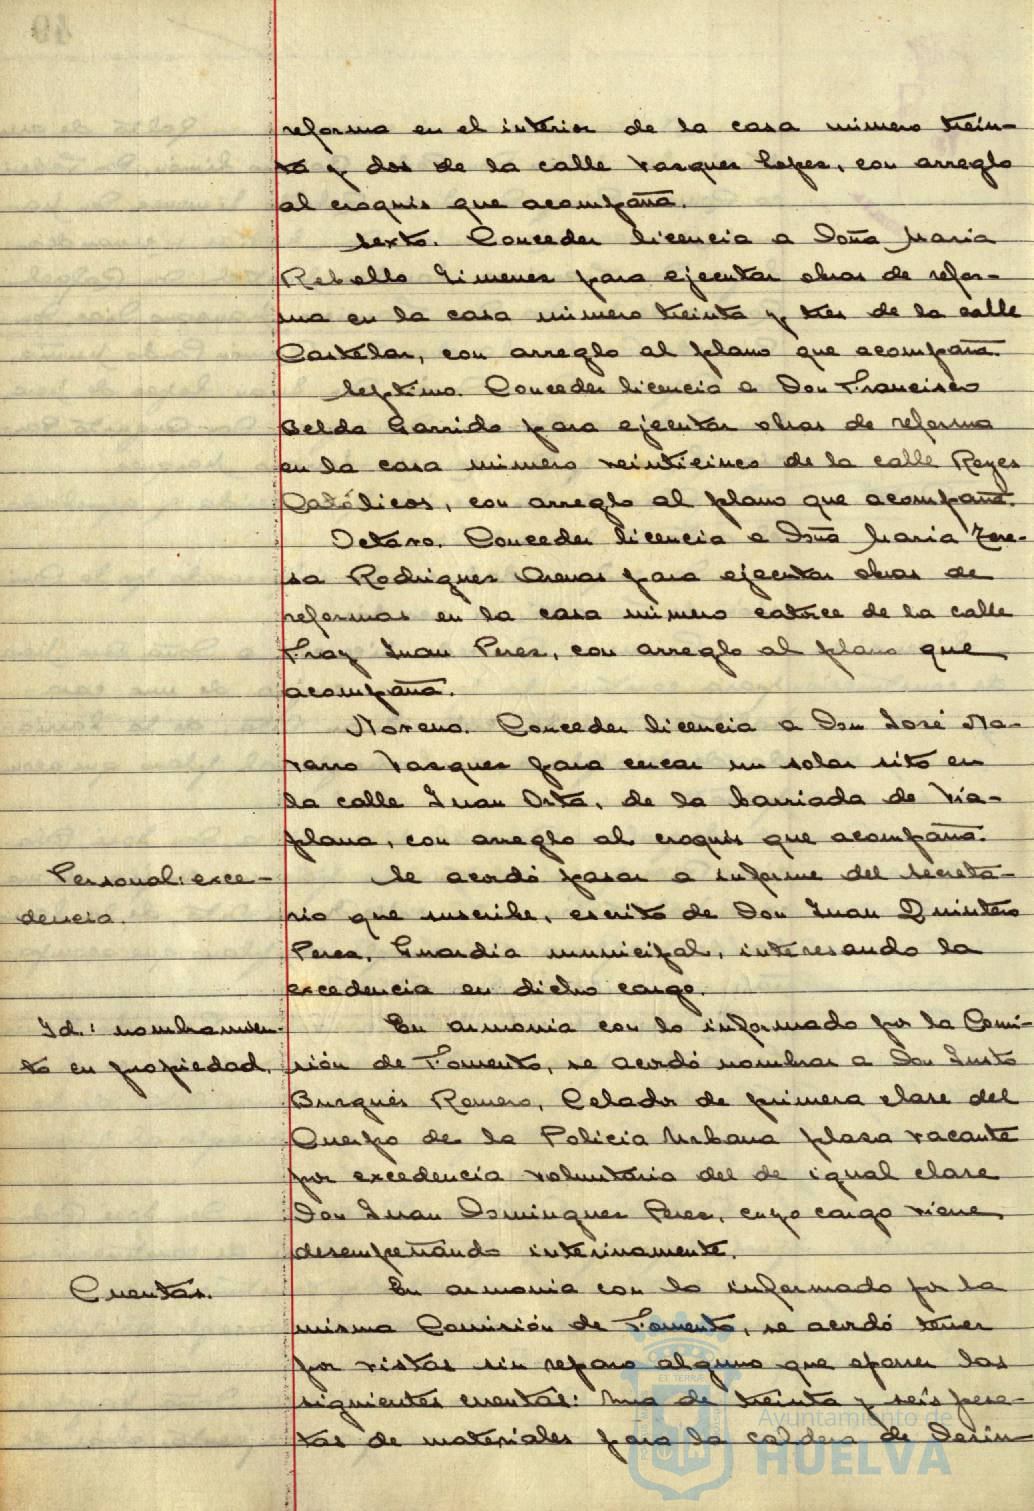 reforma en el interior de la casa número trein-
ta y dos de la calle Vasquez Lopez, con arreglo
al croquis que acompaña.
Sexto. Conceder licencia a Doña Maria
Rebollo Jimenez para ejecutar obras de refor-
ma en la casa número treinta y tres de la calle
Castelar, con arreglo al plano que acompaña.
Septimo. Conceder licencia a Don Francisco
Belda Garrido para ejecutar obras de reforma
en la casa número veinticinco de la calle Reyes
Católicos, con arreglo al plano que acompaña.
Octavo. Conceder licencia a Doña Maria Tere-
sa Rodriguez Arenas para ejecutar obras de
reformas en la casa número catorce de la calle
Fray Juan Perez, con arreglo al plano que
acompaña.
Noveno. Conceder licencia a Don José Na-
varro Vasquez para cercar un solar sito en
la calle Juan Orta, de la barriada de Via-
plana, con arreglo al croquis que acompaña.
Personal: exce-
dencia.
Se acordó pasar a informe del Secreta-
rio que suscribe, escrito de Don Juan Quintero
Perea, Guardia municipal, interesando la
excedencia en dicho cargo.
Id.: nombramien-
to en propiedad.
En armonia con lo informado por la Comi-
sión de Fomento, se acordó nombrar a Don Justo
Burgués Romero, Celador de primera clase del
Cuerpo de la Policia Urbana plasa vacante
por excedencia voluntaria del de igual clase
Don Juan Dominguez Perez, cuyo cargo viene
desempeñando interinamente.
Cuentas.
En armonia con lo informado por la
misma Comisión de Fomento, se acordó tener
por vistas sin reparo alguno que oponer las
siguientes cuentas: Una de treinta y seis pese-
tas de materiales para la caldera de Desin-
Ayuntamiento de
HUELVA